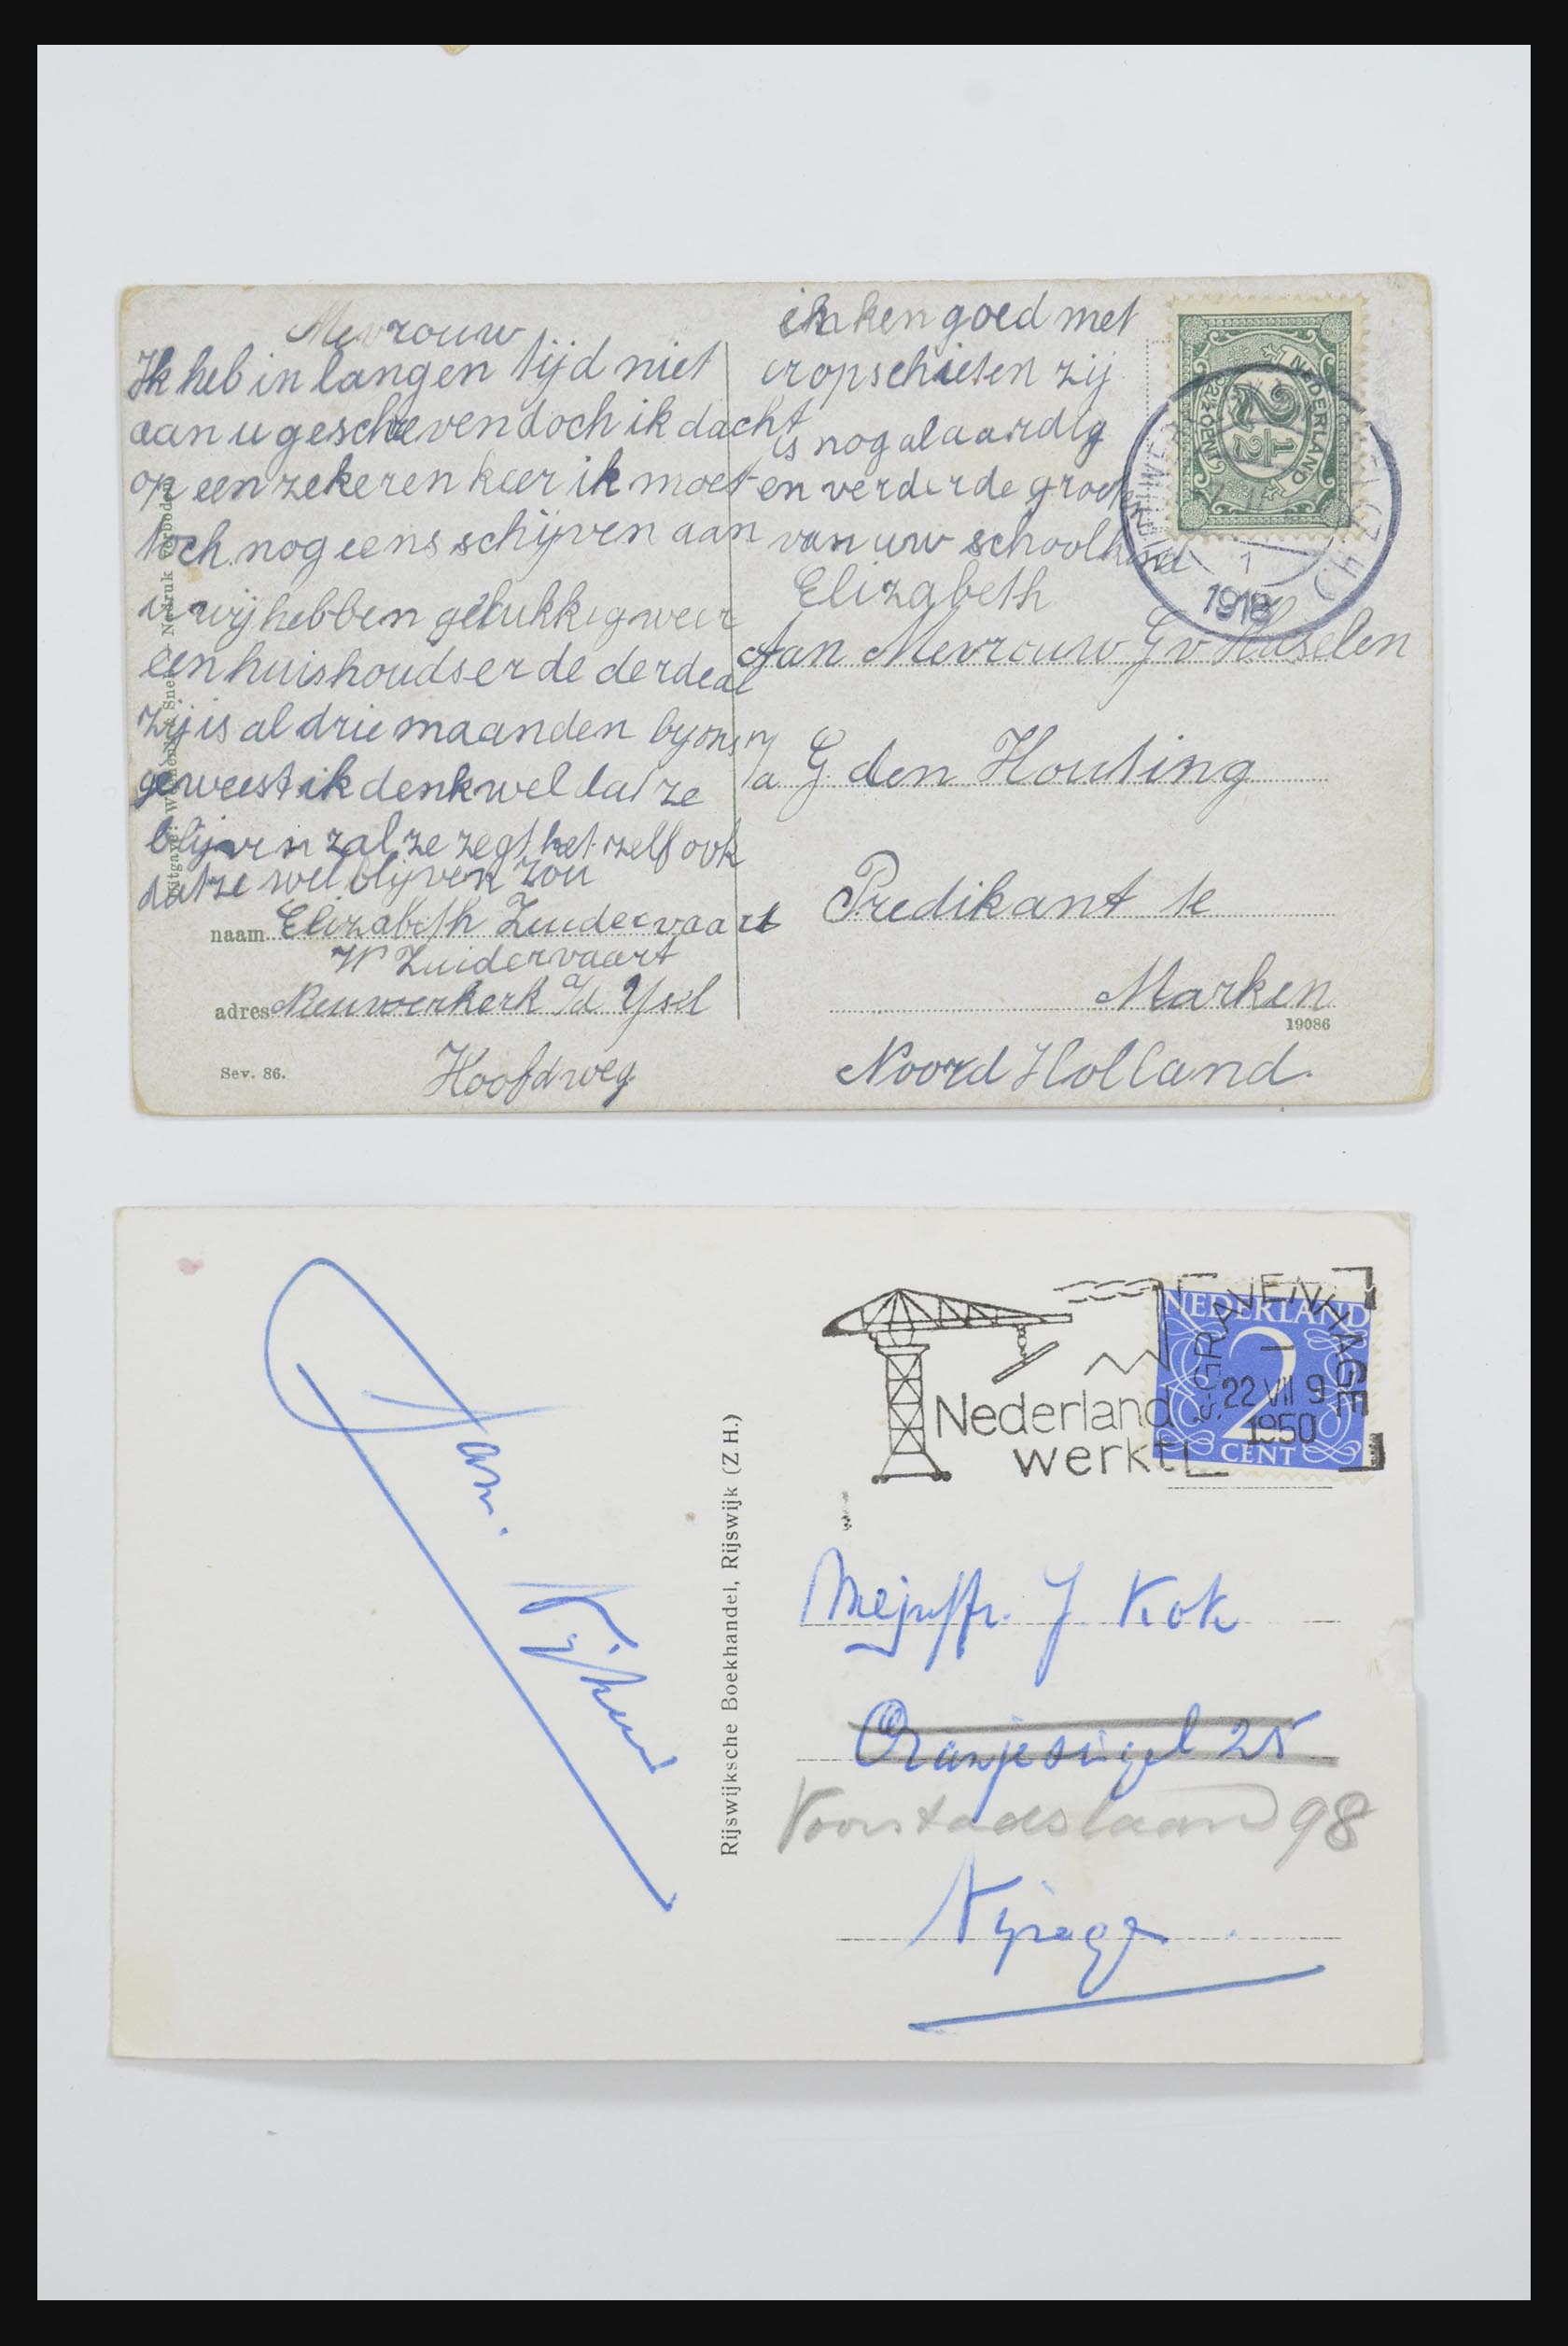 Mevrouw
Ik heb in langen tijd niet
aan u geschreven doch ik dacht
op een zekeren keer ik moet
toch nog eens schijven aan
u wij hebben gelukkig weer
een huishoudster de derde al
zij is al drie maanden by ons
geweest ik denk wel dat ze
blijven zal ze zegt het zelf ook
dat ze wel blijven zou
naam Elizabeth Zuidervaart
W Zuidervaart
adres Nieuwerkerk a/d Ysel
Hoofdweg
Sev. 86.
Nadruk verboden
ik ken goed met
er opschieten zij
is nog al aardig
en verder de groeten
van uw schoolkind
Elizabeth
NEDERLAND
2½
1
1918
Aan Mevrouw G v Huselen
p/a G. den Houting
Predikant te
Marken
19086
Noord Holland.
Jan.
Rijswijksche Boekhandel, Rijswijk (Z.H.)
Nederland
werkt
NEDERLAND
2
CENT
'S-GRAVENHAGE
22 VII 9
1950
Mejuffr. J Kok
Oranjesingel 25
98